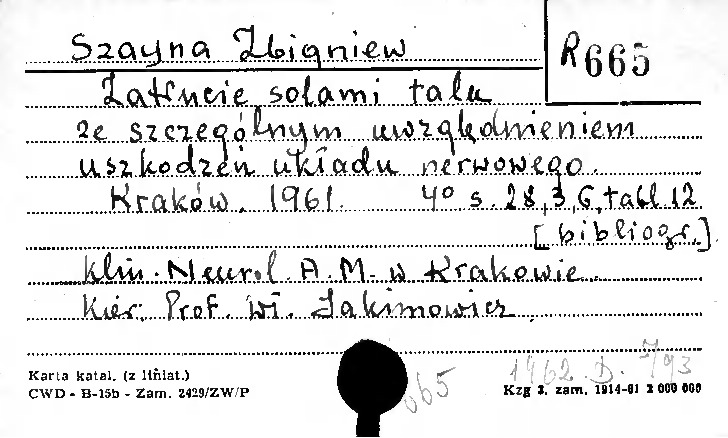 Szayna Zbigniew
R 665
Zatrucie solami talu
ze szczególnym uwzględnieniem
uszkodzeń układu nerwowego.
Kraków, 1961. 4° s. 28, 3, 6, tabl 12
[bibliogr.]
Klin. Neurol. A.M. w Krakowie.
Kier. Prof. Wł. Jakimowicz.
1962. D. 5/93
665
Karta katal. (z liniat.)
CWD - B-15b - Zam. 2429/ZW/P
Kzg 3, zam. 1914-61 2 000 000